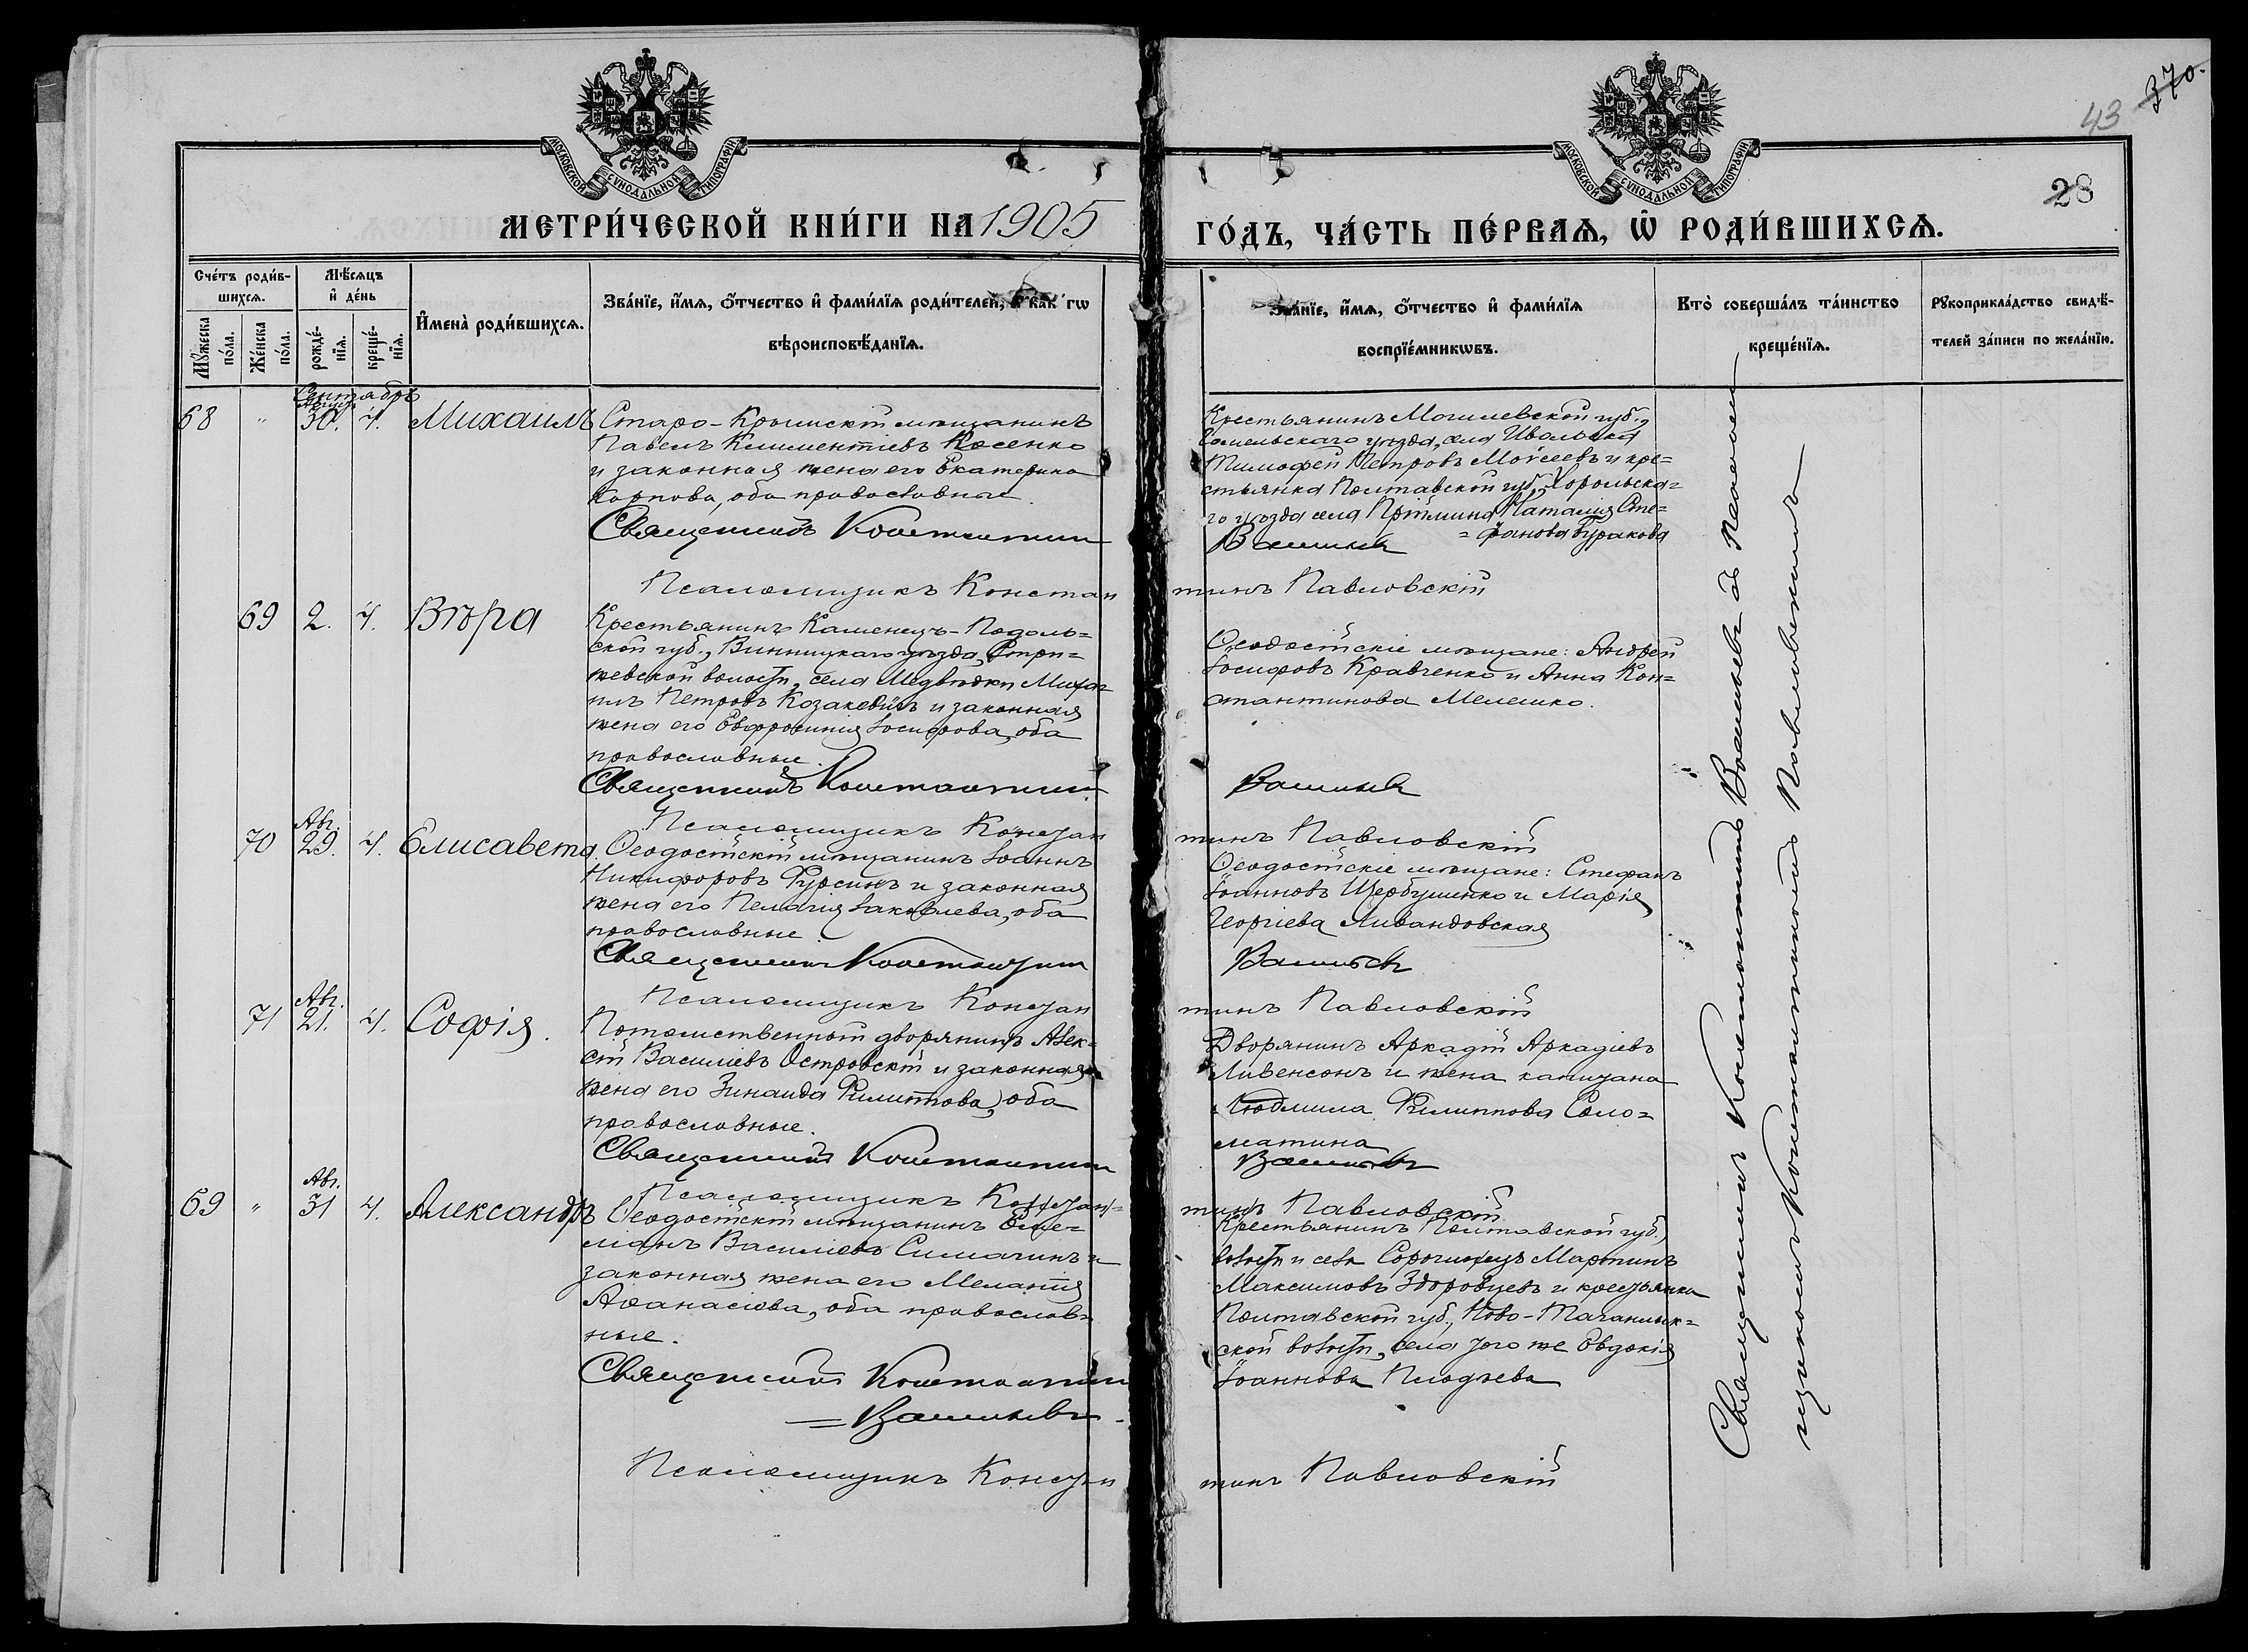 43 370.
28
МОСКОВСКОЙ СѴНОДАЛЬНОЙ ТИПОГРАФІИ
МОСКОВСКОЙ СѴНОДАЛЬНОЙ ТИПОГРАФІИ
МЕТРИ́ЧЕСКОЙ КНИ́ГИ НА 1905
ГО́ДЪ, ЧА́СТЬ ПЕ́РВАѦ, Ѡ҆ РОДИ́ВШИХСѦ.
Сче́тъ роди́в-
шихсѧ.
Мꙋ́жеска по́ла.
Же́нска по́ла.
Мѣ́сѧцъ
и҆ де́нь
рожде́-
нїѧ.
креще́-
нїѧ.
И҆мена̀ роди́вшихсѧ.
Зва́нїе, и҆́мѧ, ѻ҆́тчество и҆ фами́лїѧ роди́телей,
вѣроисповѣ́данїѧ.
Зва́нїе, и҆́мѧ, ѻ҆́тчество и҆ фами́лїѧ
воспрїе́мникѡвъ.
Кто̀ соверша́лъ та́инство
креще́нїѧ.
Рꙋкоприкла́дство свидѣ́-
телей за́писи по жела́нїю.
Сентябрь
68 " Август 30. 4. Михаилъ
Старо-Крымскій мѣщанинъ
Павелъ Климентіевъ Косенко
и законная жена его Екатерина
Карпова, оба православные.
Священникъ Константинъ
Псаломщикъ Констан
Крестьянинъ Могилевской губ.,
Гомельскаго уѣзда, села Ивольска
Тимофей Петровъ Моисеевъ и кре=
стьянка Полтавской губ., Хорольска=
го уѣзда села Наталия Сте=
=фанова Буракова
Васильевъ
тинъ Павловскій
69 2. 4. Вѣра
Крестьянинъ Каменецъ-Подоль=
ской губ., Винницкаго уѣзда, Стри=
жевской волости, села Медвѣдки Миха=
илъ Петровъ Козакевичъ и законная
жена его Евфросинія Іосифова, оба
православные.
Священникъ Константинъ
Псаломщикъ Констан
Ѳеодосійскіе мѣщане: Андрей
Іосифовъ Кравченко и Анна Кон=
стантинова Мелешко.
Васильевъ
тинъ Павловскій
70 Авг. 29. 4. Елисавета.
Ѳеодосійскій мѣщанинъ Іоаннъ
Никифоровъ Фурсинъ и законная
жена его Пелагія Іаковлева, оба
православные.
Священникъ Константинъ
Псаломщикъ Констан
Ѳеодосійскіе мѣщане: Стефанъ
Іоанновъ Щербушенко и Марія
Георгіева Ливандовская
Васильевъ
тинъ Павловскій
71 Авг. 21. 4. Софія.
Потомственный дворянинъ Алек=
сій Василіевъ Островскій и законная
жена его Зинаида Филиппова, оба
православные.
Священникъ Константинъ
Псаломщикъ Констан=
Дворянинъ Аркадій Аркадіевъ
Ливенсонъ и жена капитана
Людмила Филиппова Соло=
матина
Васильевъ
тинъ Павловскій
69 " Авг. 31 4. Александръ
Ѳеодосійскій мѣщанинъ
Василіевъ Симагинъ и
законная жена его Меланія
Аѳанасіева, оба православ=
ные.
Священникъ Константинъ
= Васильевъ.
Псаломщикъ Констан
Крестьянинъ Полтавской губ.,
волости и села Сорочинецъ Мартинъ
Максимовъ Здоровцевъ и крестьянка
Полтавской губ., Ново-
ской волости, села того же Евдокія
Іоаннова
тинъ Павловскій
Священникъ Константинъ Васильевъ съ Псалом
щикомъ Константиномъ Павловскимъ